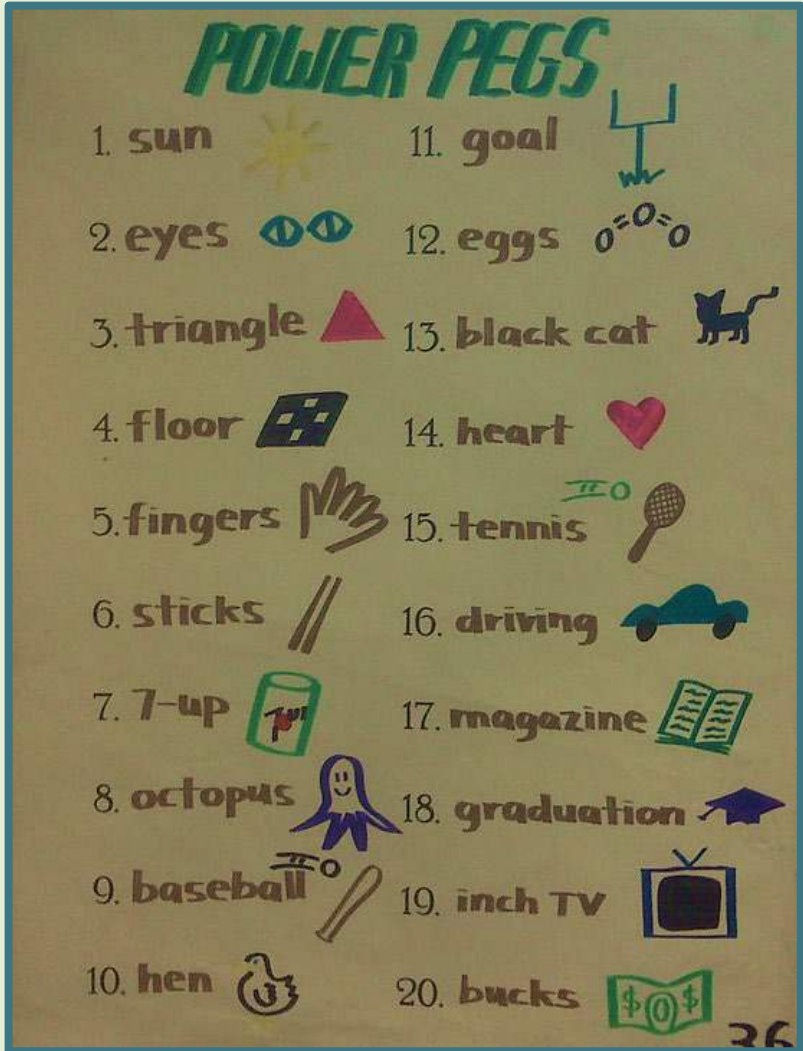 POWER PEGS
1. sun
2. eyes
3. triangle
4. floor
5. fingers
6. sticks
7. 7-up
7UP
8. octopus
9. baseball
10. hen
11. goal
12. eggs
13. black cat
14. heart
15. tennis
16. driving
17. magazine
18. graduation
19. inch TV
20. bucks
$ 0 $
36